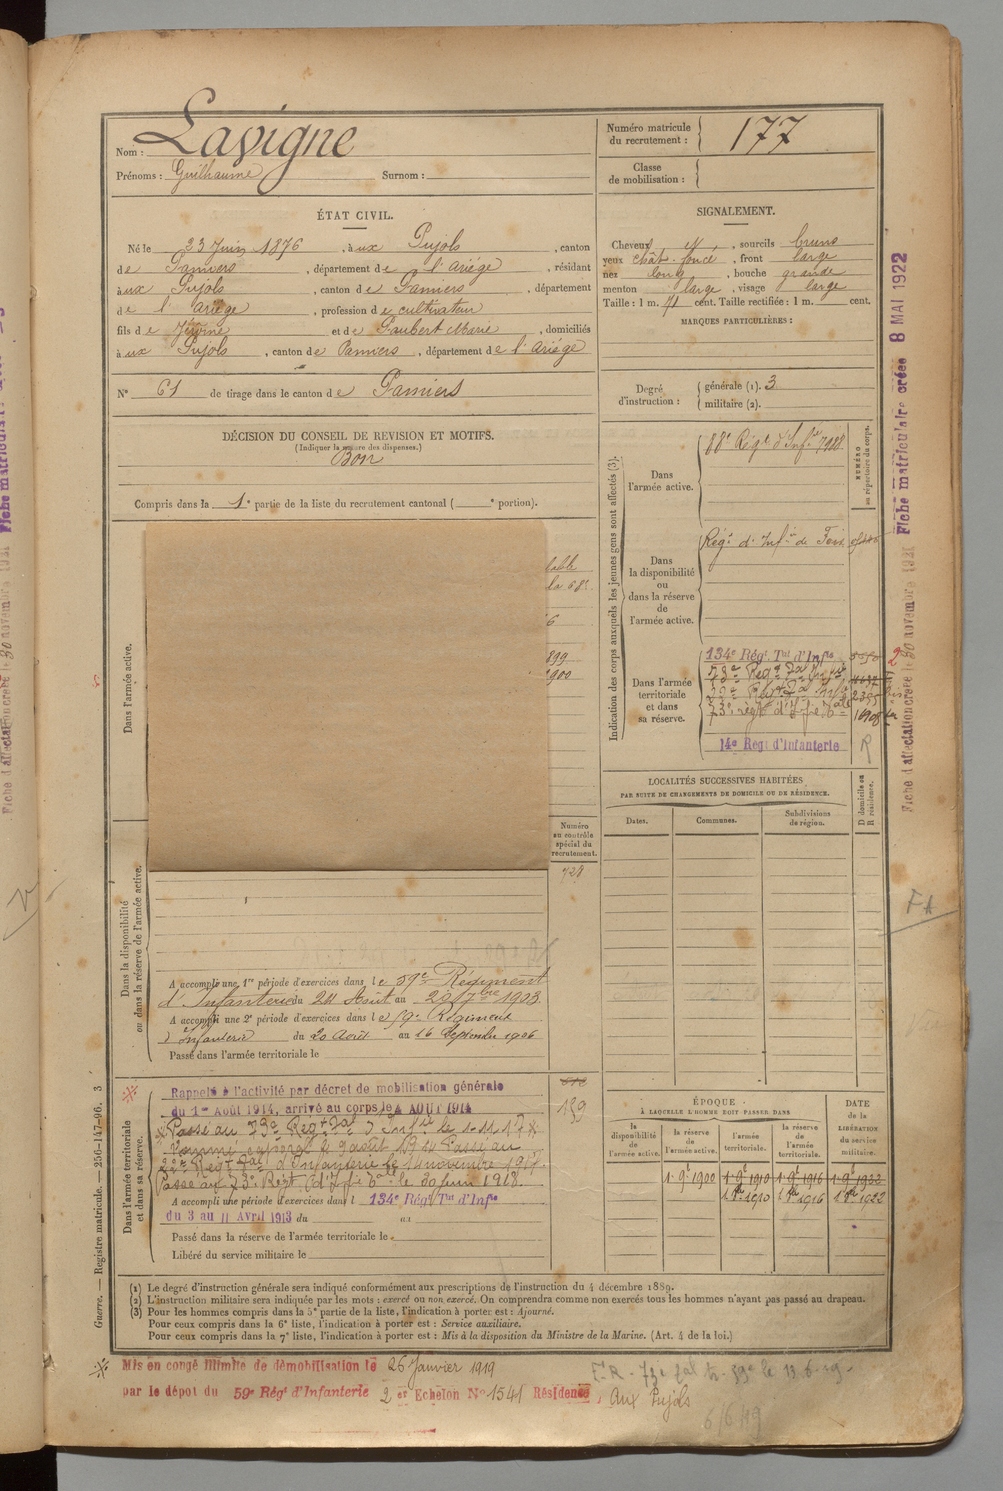 Nom : Lavigne
Prénoms : Guilhaume Surnom :
Numéro matricule du recrutement : 177
Classe de mobilisation :
ÉTAT CIVIL.
Né le 23 Juin 1876, à ux Pujols, canton
de Pamiers, département de l'Ariége, résidant
à ux Pujols, canton de Pamiers, département
de l'Ariége, profession de cultivateur
fils de et de Gaubert Marie, domiciliés
à ux Pujols, canton de Pamiers, département de l'Ariége
N° 61 de tirage dans le canton de Pamiers
DÉCISION DU CONSEIL DE REVISION ET MOTIFS.
(Indiquer la nature des dispenses.)
Bon
Compris dans la 1e partie de la liste du recrutement cantonal ( e portion).
SIGNALEMENT.
Cheveux et, sourcils bruns
yeux chât. foncé, front large
nez long, bouche grande
menton large, visage large
Taille : 1 m. 71 cent. Taille rectifiée : 1 m. cent.
MARQUES PARTICULIÈRES :
Degré d'instruction :
générale (1). 3
militaire (2).
Indication des corps auxquels les jeunes gens sont affectés (3).
NUMÉRO au répertoire du corps.
Dans l'armée active.
88e Régt d'Infie 7988
Dans la disponibilité ou dans la réserve de l'armée active.
Régt d'Infie de Foix
Dans l'armée territoriale et dans sa réserve.
134e Régt Tal d'Infie
14e Régt d'Infanterie
R
LOCALITÉS SUCCESSIVES HABITÉES
PAR SUITE DE CHANGEMENTS DE DOMICILE OU DE RÉSIDENCE.
D domicile ou R résidence.
Dates.
Communes.
Subdivisions de région.
Dans l'armée active.
899
1900
Numéro au contrôle spécial du recrutement.
728
Dans la disponibilité ou dans la réserve de l'armée active.
A accompli une 1re période d'exercices dans le 59e Régiment
d'Infanterie du 24 Août au 20 7bre 1903
A accompli une 2e période d'exercices dans le 59e Régiment
d'Infanterie du 20 Août au 16 Septembre 1906
Passé dans l'armée territoriale le
Dans l'armée territoriale et dans sa réserve.
Rappelé à l'activité par décret de mobilisation générale
du 1er Août 1914, arrivé au corps le 4 AOUT 1914
159
Passé au 73e Régt Tal d'Infie le 1-11-17
Passé au
22e Régt Tal d'Infanterie le 1 novembre 1917
Passé au 73e Régt d'Infie le 30 juin 1918.
A accompli une période d'exercices dans l 134e Régt Tal d'Infie
du 3 au 11 Avril 1913 du au
Passé dans la réserve de l'armée territoriale le
Libéré du service militaire le
ÉPOQUE
À LAQUELLE L'HOMME DOIT PASSER DANS
DATE de la LIBÉRATION du service militaire.
la disponibilité de l'armée active.
la réserve de l'armée active.
l'armée territoriale.
la réserve de l'armée territoriale.
1 9e 1900 1 9e 1910 1 9e 1916 1 9e 1922
1 8bre 1910 1 8bre 1916 1 8bre 1922
(1) Le degré d'instruction générale sera indiqué conformément aux prescriptions de l'instruction du 4 décembre 1889.
(2) L'instruction militaire sera indiquée par les mots : exercé ou non exercé. On comprendra comme non exercés tous les hommes n'ayant pas passé au drapeau.
(3) Pour les hommes compris dans la 5e partie de la liste, l'indication à porter est : Ajourné.
Pour ceux compris dans la 6e liste, l'indication à porter est : Service auxiliaire.
Pour ceux compris dans la 7e liste, l'indication à porter est : Mis à la disposition du Ministre de la Marine. (Art. 4 de la loi.)
Mis en congé illimité de démobilisation le 26 Janvier 1919
par le dépôt du 59e Régt d'Infanterie 2er Echelon N° 1541 Résidence, Aux Pujols
6/6/19
Guerre. — Registre matricule. — 256-147-96. 3
Fiche matriculaire créée 8 MAI 1922
Fiche d'affectation créée le 30 novembre 1921
FA